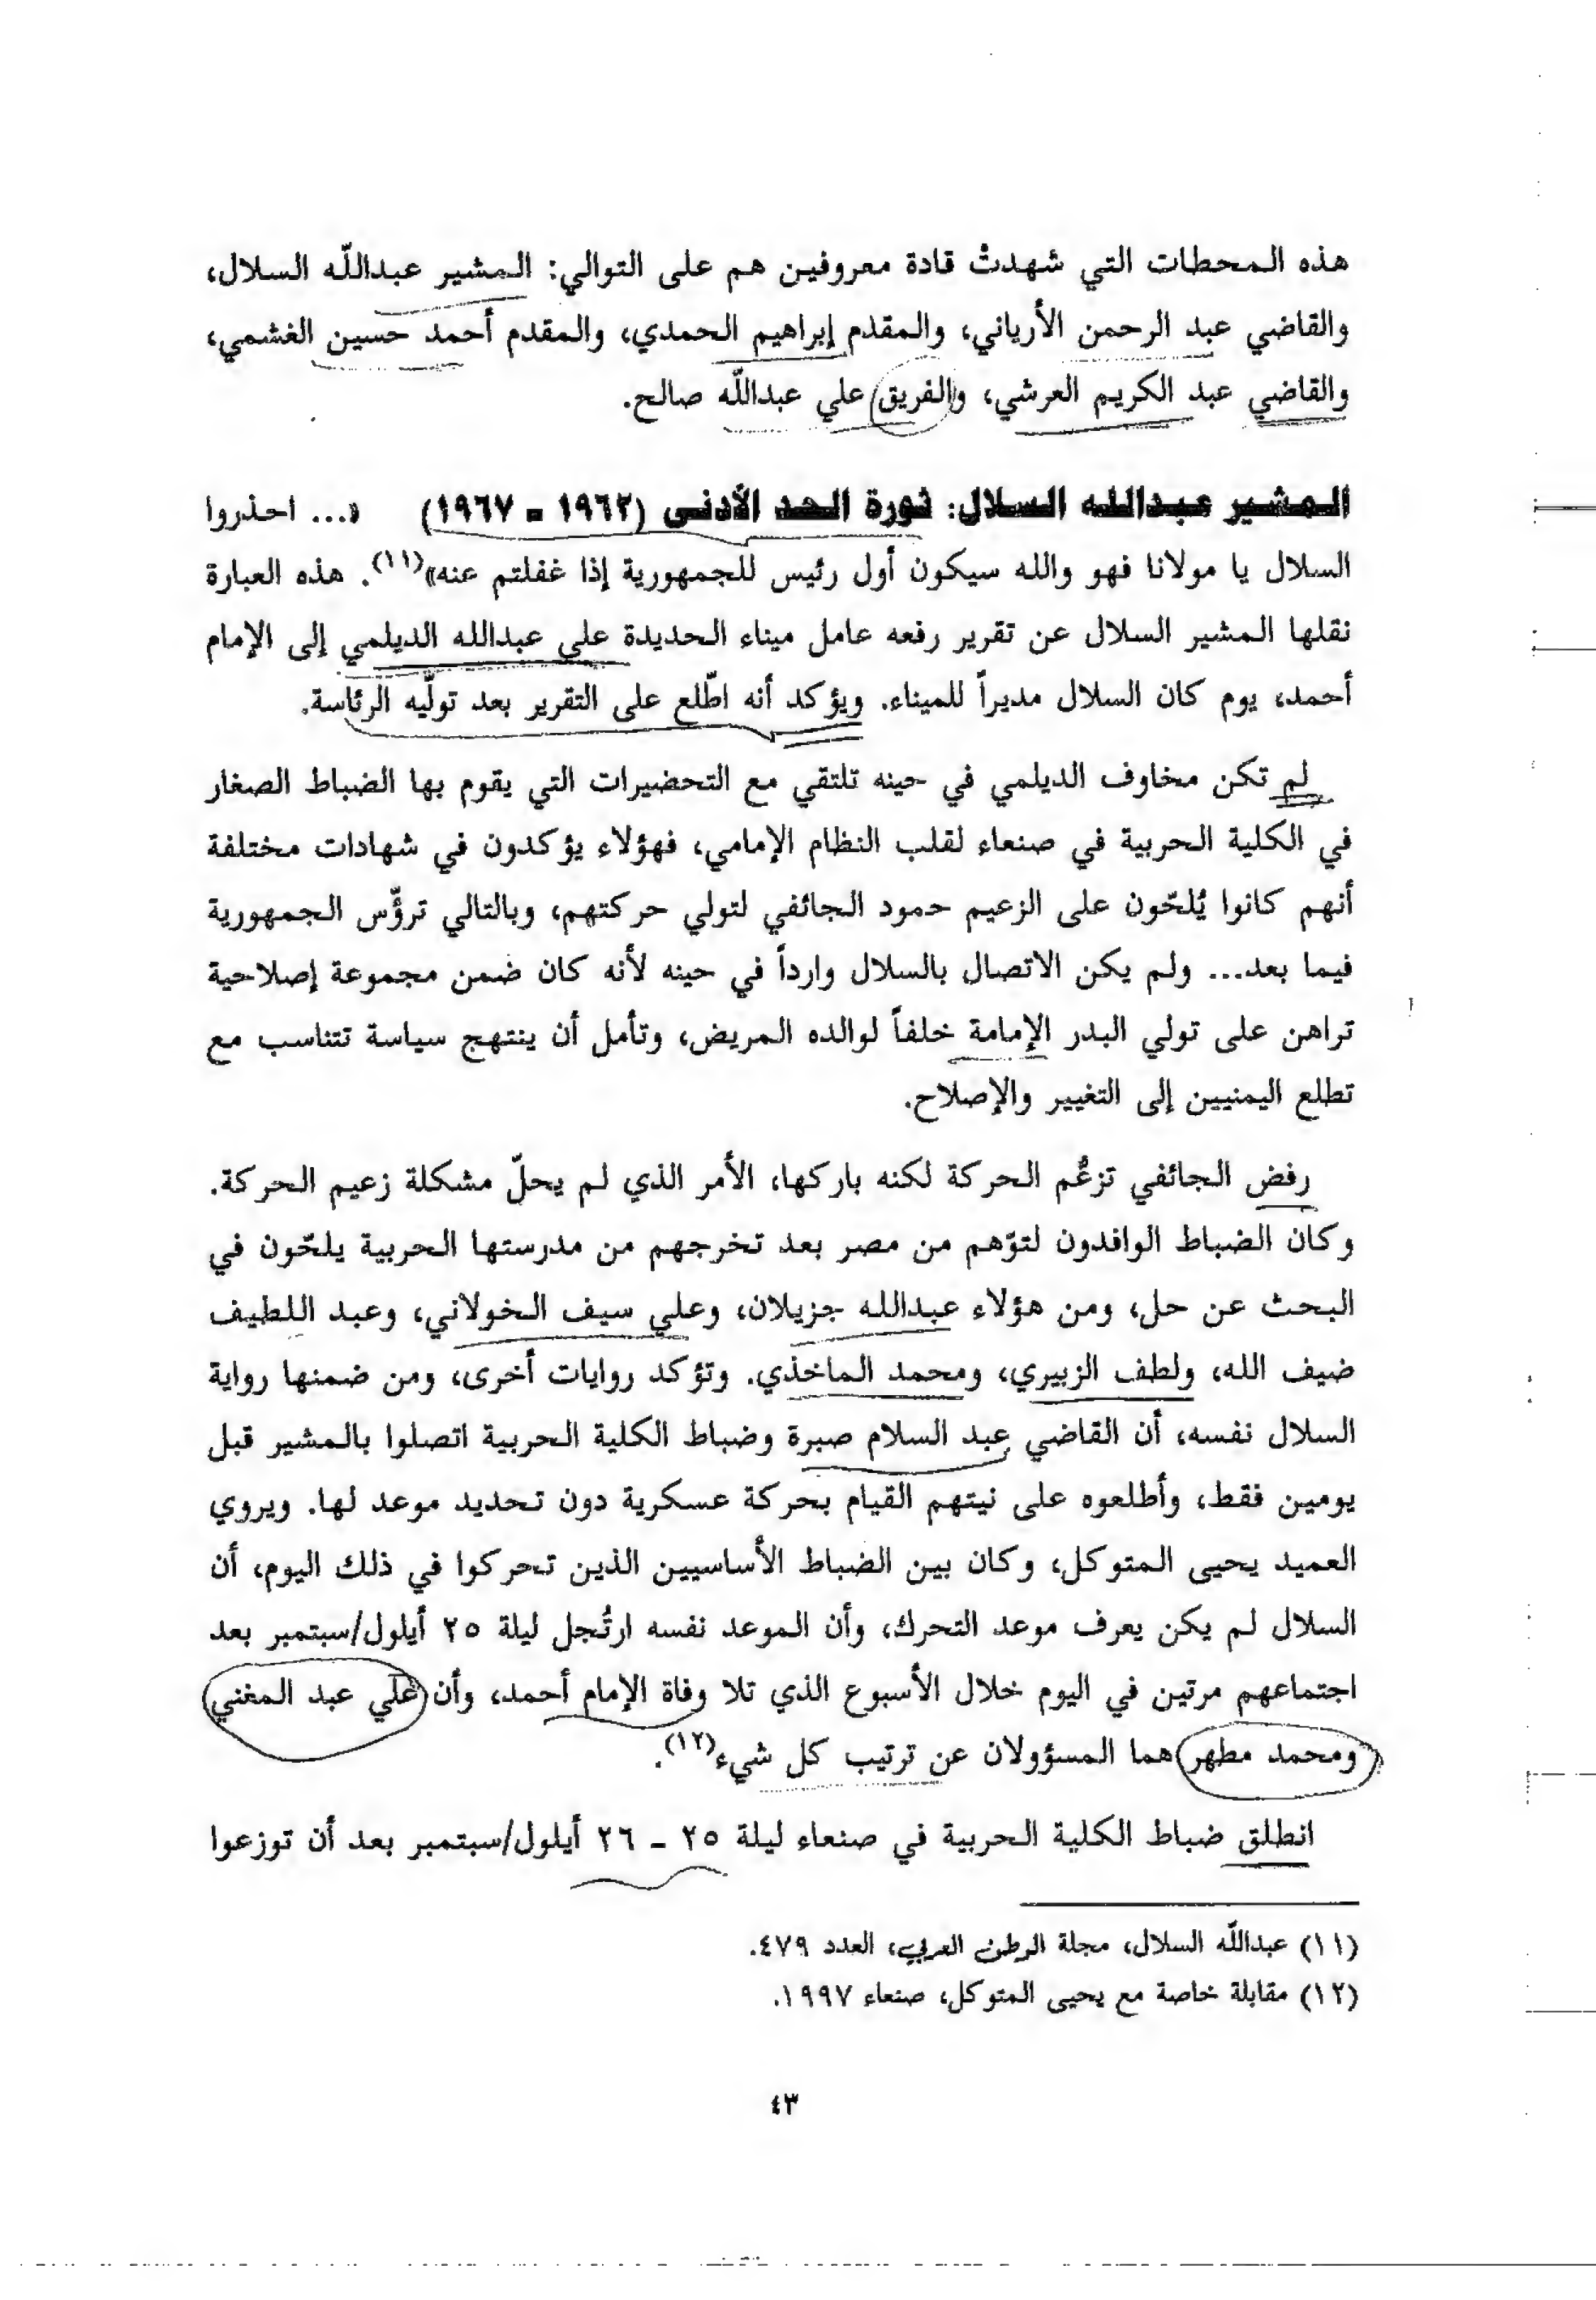 هذه المحطات التي شهدتْ قادة معروفين هم على التوالي: المشير عبداللّه السلال،
والقاضي عبد الرحمن الأرياني، والمقدم إبراهيم الحمدي، والمقدم أحمد حسين الغشمي،
والقاضي عبد الكريم العرشي، والفريق علي عبداللّه صالح.
المشير عبدالله السلال: ثورة الحد الأدنى (١٩٦٢ - ١٩٦٧) «... احذروا
السلال يا مولانا فهو والله سيكون أول رئيس للجمهورية إذا غفلتم عنه»(١١). هذه العبارة
نقلها المشير السلال عن تقرير رفعه عامل ميناء الحديدة علي عبدالله الديلمي إلى الإمام
أحمد، يوم كان السلال مديراً للميناء. ويؤكد أنه اطّلع على التقرير بعد تولّيه الرئاسة.
لم تكن مخاوف الديلمي في حينه تلتقي مع التحضيرات التي يقوم بها الضباط الصغار
في الكلية الحربية في صنعاء لقلب النظام الإمامي، فهؤلاء يؤكدون في شهادات مختلفة
أنهم كانوا يُلحّون على الزعيم حمود الجائفي لتولي حركتهم، وبالتالي ترؤّس الجمهورية
فيما بعد... ولم يكن الاتصال بالسلال وارداً في حينه لأنه كان ضمن مجموعة إصلاحية
تراهن على تولي البدر الإمامة خلفاً لوالده المريض، وتأمل أن ينتهج سياسة تتناسب مع
تطلع اليمنيين إلى التغيير والإصلاح.
رفض الجائفي تزعُّم الحركة لكنه باركها، الأمر الذي لم يحلّ مشكلة زعيم الحركة.
وكان الضباط الوافدون لتوّهم من مصر بعد تخرجهم من مدرستها الحربية يلحّون في
البحث عن حل، ومن هؤلاء عبدالله جزيلان، وعلي سيف الخولاني، وعبد اللطيف
ضيف الله، ولطف الزبيري، ومحمد الماخذي. وتؤكد روايات أخرى، ومن ضمنها رواية
السلال نفسه، أن القاضي عبد السلام صبرة وضباط الكلية الحربية اتصلوا بالمشير قبل
يومين فقط، وأطلعوه على نيتهم القيام بحركة عسكرية دون تحديد موعد لها. ويروي
العميد يحيى المتوكل، وكان بين الضباط الأساسيين الذين تحركوا في ذلك اليوم، أن
السلال لم يكن يعرف موعد التحرك، وأن الموعد نفسه ارتُجل ليلة ٢٥ أيلول/سبتمبر بعد
اجتماعهم مرتين في اليوم خلال الأسبوع الذي تلا وفاة الإمام أحمد، وأن علي عبد المغني
ومحمد مطهر هما المسؤولان عن ترتيب كل شيء(١٢).
انطلق ضباط الكلية الحربية في صنعاء ليلة ٢٥ - ٢٦ أيلول/سبتمبر بعد أن توزعوا
(١١) عبداللّه السلال، مجلة الوطن العربي، العدد ٤٧٩.
(١٢) مقابلة خاصة مع يحيى المتوكل، صنعاء ١٩٩٧.
٤٣